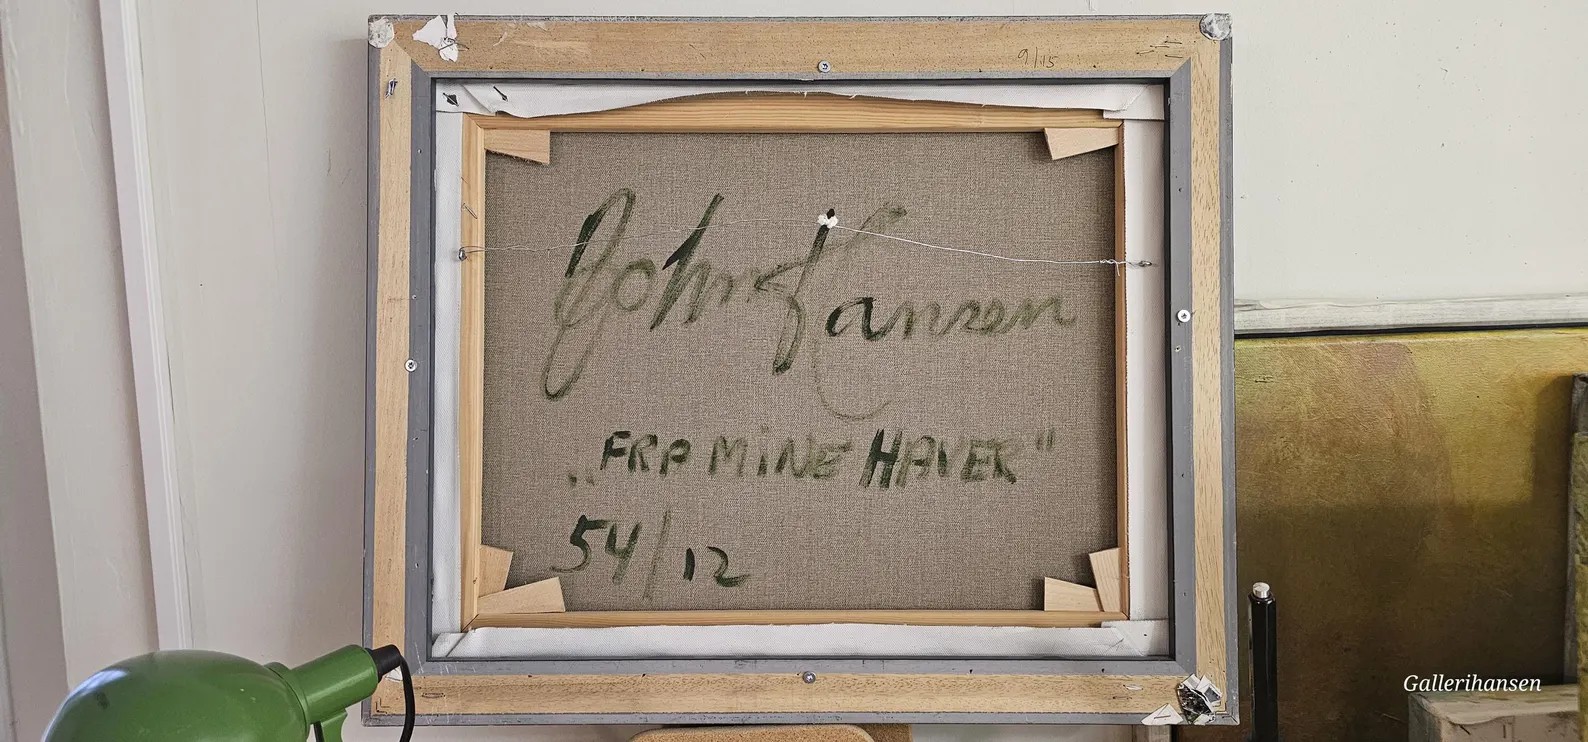 9/15
John Kansen
„FRA MINE HAVER"
54/12
Gallerihansen